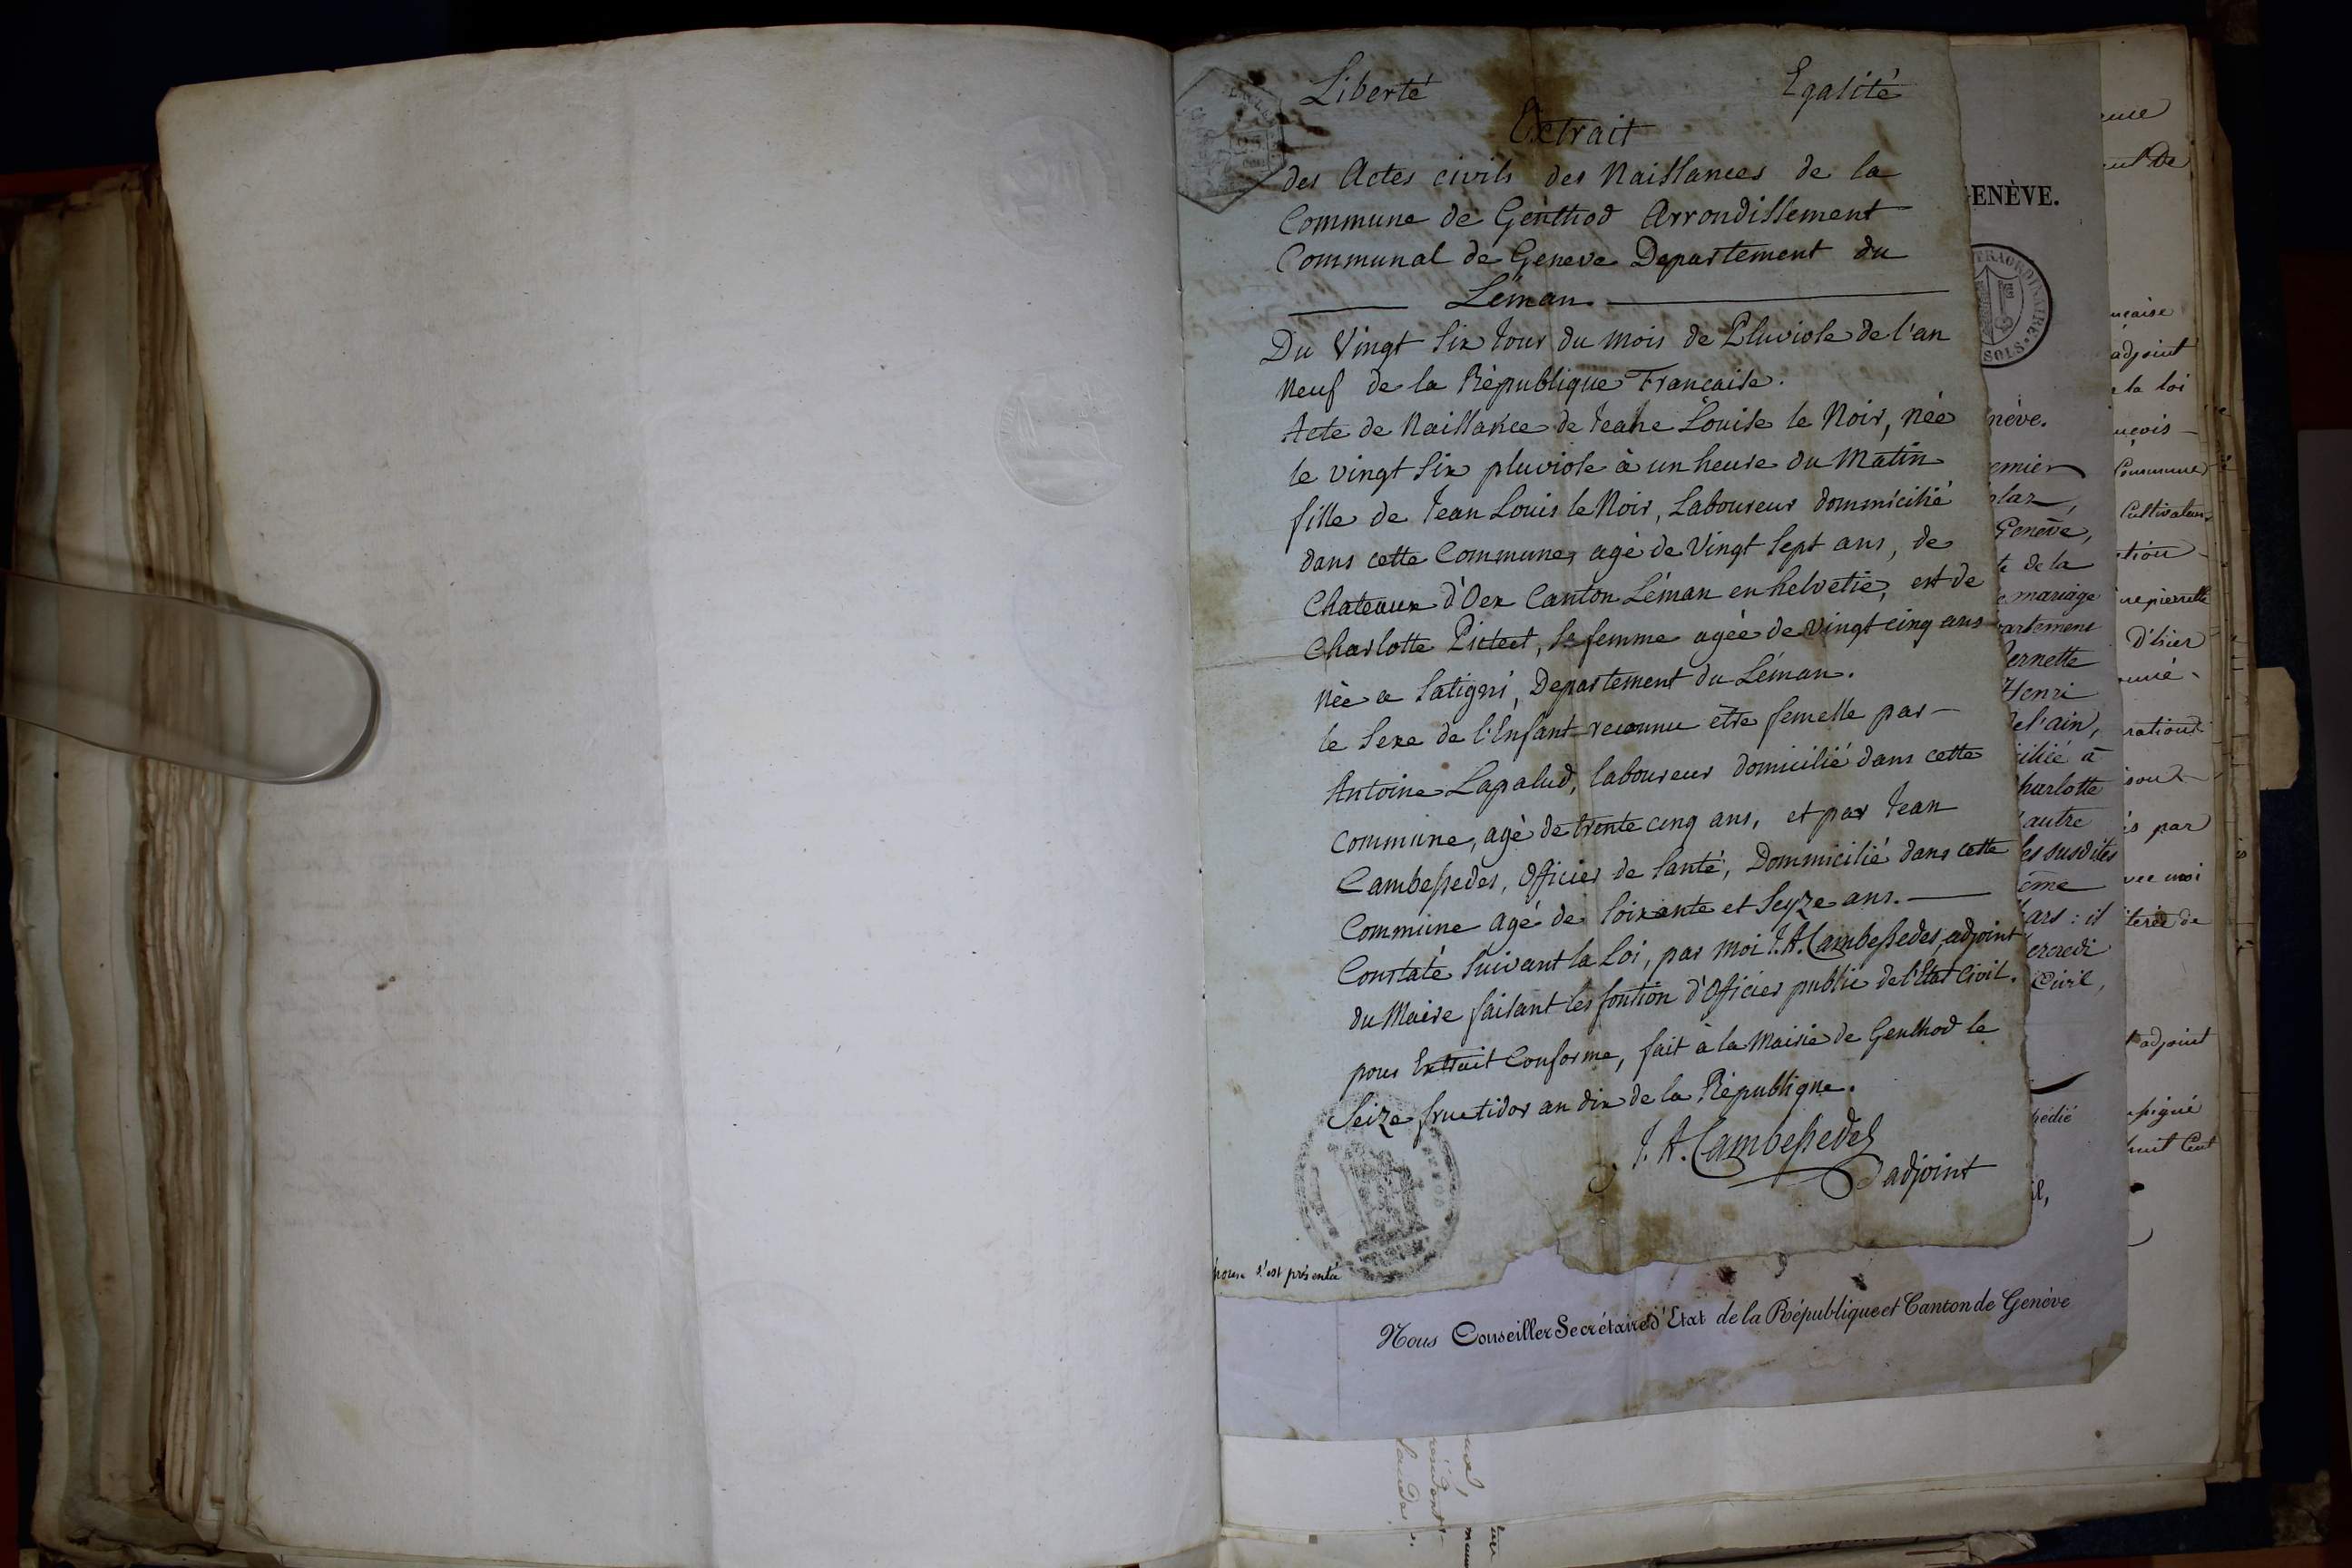 Liberté Egalité
Extrait
des Actes civils des Naissances de la
Commune de Genthod Arrondissement
Communal de Geneve Departement du
Léman
Du Vingt Six Jour du mois de Pluviose de l'an
Neuf de la République Francaise.
Acte de Naissance de Jeane Louise le Noir, née
le vingt Six pluviose à un heure du Matin
fille de Jean Louis le Noir, Laboureur dommicilié
dans cette Commune, agé de Vingt Sept ans, de
Chateaux d'Oex Canton Léman en helvetie, est de
Charlotte Pictect, Sa femme agée de vingt cinq ans
Née a Satigni, Departement du Léman.
le Sexe de l'Enfant reconnu etre femelle par
Antoine Lapalud, laboureur domicilié dans cette
Commune, agé de trente cinq ans, et par Jean
Cambessedes, Officier de Santé, Dommicilié dans cette
Commune agé de Soixante et Seyze ans.
Constaté Suivant la Loi, par moi J. A. Cambessedes, adjoint
du Maire faisant les fontion d'Officier public de l'Etat Civil.
pour Extrait Conforme, fait à la Mairie de Genthod le
Seize fructidor an dix de la République.
J. A. Cambessedes
adjoint
s'est présentée
Nous Conseiller Secrétaire d'Etat de la République et Canton de Genève
GENÈVE.
TRAORDINAIRE
SOLS
nève.
emier
Genève,
te de la
mariage
partement
ernette
Henri
del'ain,
cilié à
harlotte
l'autre
les susdites
ème
ars : il
ercredi
Civil,
pédié
ul,
adjoint
la loi
Commune
Cultivateur
d'hier
par
avec moi
adjoint
huit Cent